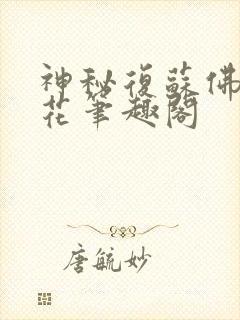 神秘復蘇佛
花筆趣閣
唐毓妙